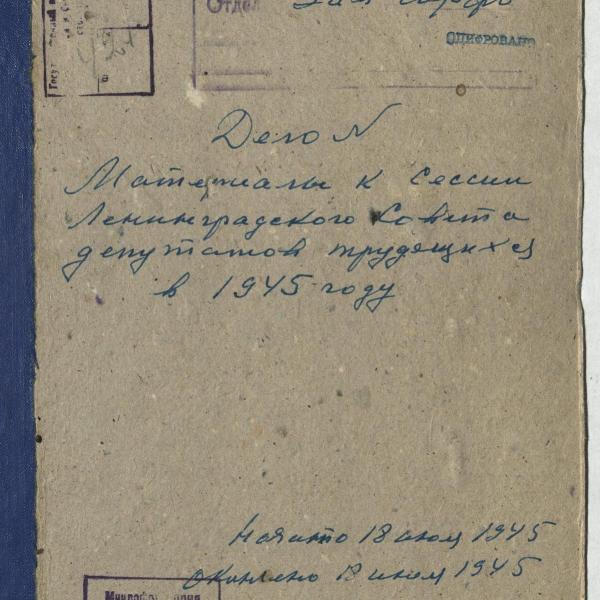 Отдел
ОЦИФРОВАНО
Дело N
Материалы к сессии
Ленинградского Совета
депутатов трудящихся
в 1945 году
Начато 18 июля 1945
Окончено 18 июля 1945